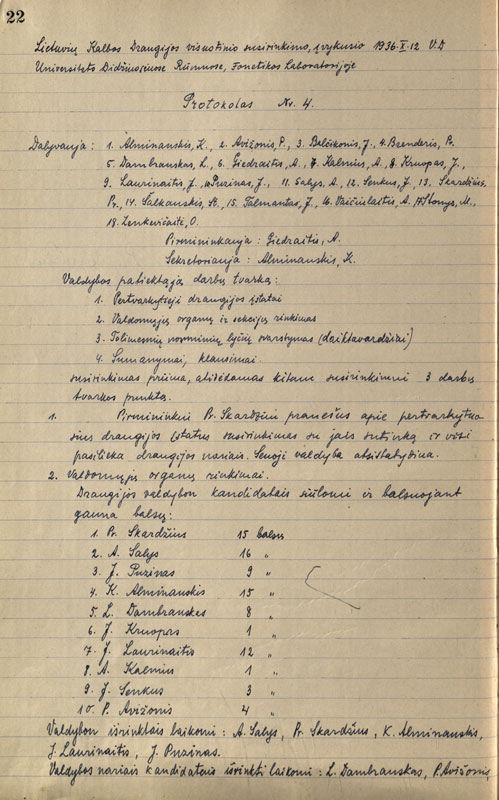 22
Lietuvių Kalbos Draugijos visuotinio susirinkimo, įvykusio 1936.X.12 V.D
Universiteto Didžiuosiuose Rūmuose, Fonetikos Laboratorijoje
Protokolas Nr. 4.
Dalyvauja: 1. Alminauskis, K., 2. Avižonis, P., 3. Balčikonis, J., 4. Brenderis, Pr.
5. Dambrauskas, L., 6. Giedraitis, A., 7. Kalnius, A., 8. Kruopas, J.,
9. Laurinaitis, J., 10. Puzinas, J., 11. Salys, A., 12. Senkus, J., 13. Skardžius,
Pr., 14. Šalkauskis, St., 15. Talmantas, J., 16. Vaičiulaitis, A. 17. Stonys, M.,
18. Zenkevičaitė, O.
Pirmininkauja: Giedraitis, A.
Sekretoriauja: Alminauskis, K.
Valdybos patiektąją darbų tvarką:
1. Pertvarkytieji draugijos įstatai
2. Valdomųjų organų ir sekcijų rinkimas
3. Tolimesnių norminių lyčių svarstymas (daiktavardžiai)
4. Sumanymai, klausimai.
susirinkimas priima, atidėdamas kitam susirinkimui 3 darbų
tvarkos punktą.
1. Pirmininkui Pr. Skardžiui pranešus apie pertvarkytuo
sius draugijos įstatus susirinkimas su jais sutinka ir visi
pasilieka draugijos nariais. Senoji valdyba atsistatydina.
2. Valdomųjų organų rinkimai.
Draugijos valdybon kandidatais siūlomi ir balsuojant
gauna balsų:
1. Pr. Skardžius 15 balsų
2. A. Salys 16 „
3. J. Puzinas 9 „
4. K. Alminauskis 15 „
5. L. Dambrauskas 8 „
6. J. Kruopas 1 „
7. J. Laurinaitis 12 „
8. A. Kalnius 1 „
9. J. Senkus 3 „
10. P. Avižonis 4 „
Valdybon išrinktais laikomi: A. Salys, Pr. Skardžius, K. Alminauskis,
J. Laurinaitis, J. Puzinas.
Valdybos nariais kandidatais išrinkti laikomi: L. Dambrauskas, P. Avižonis,